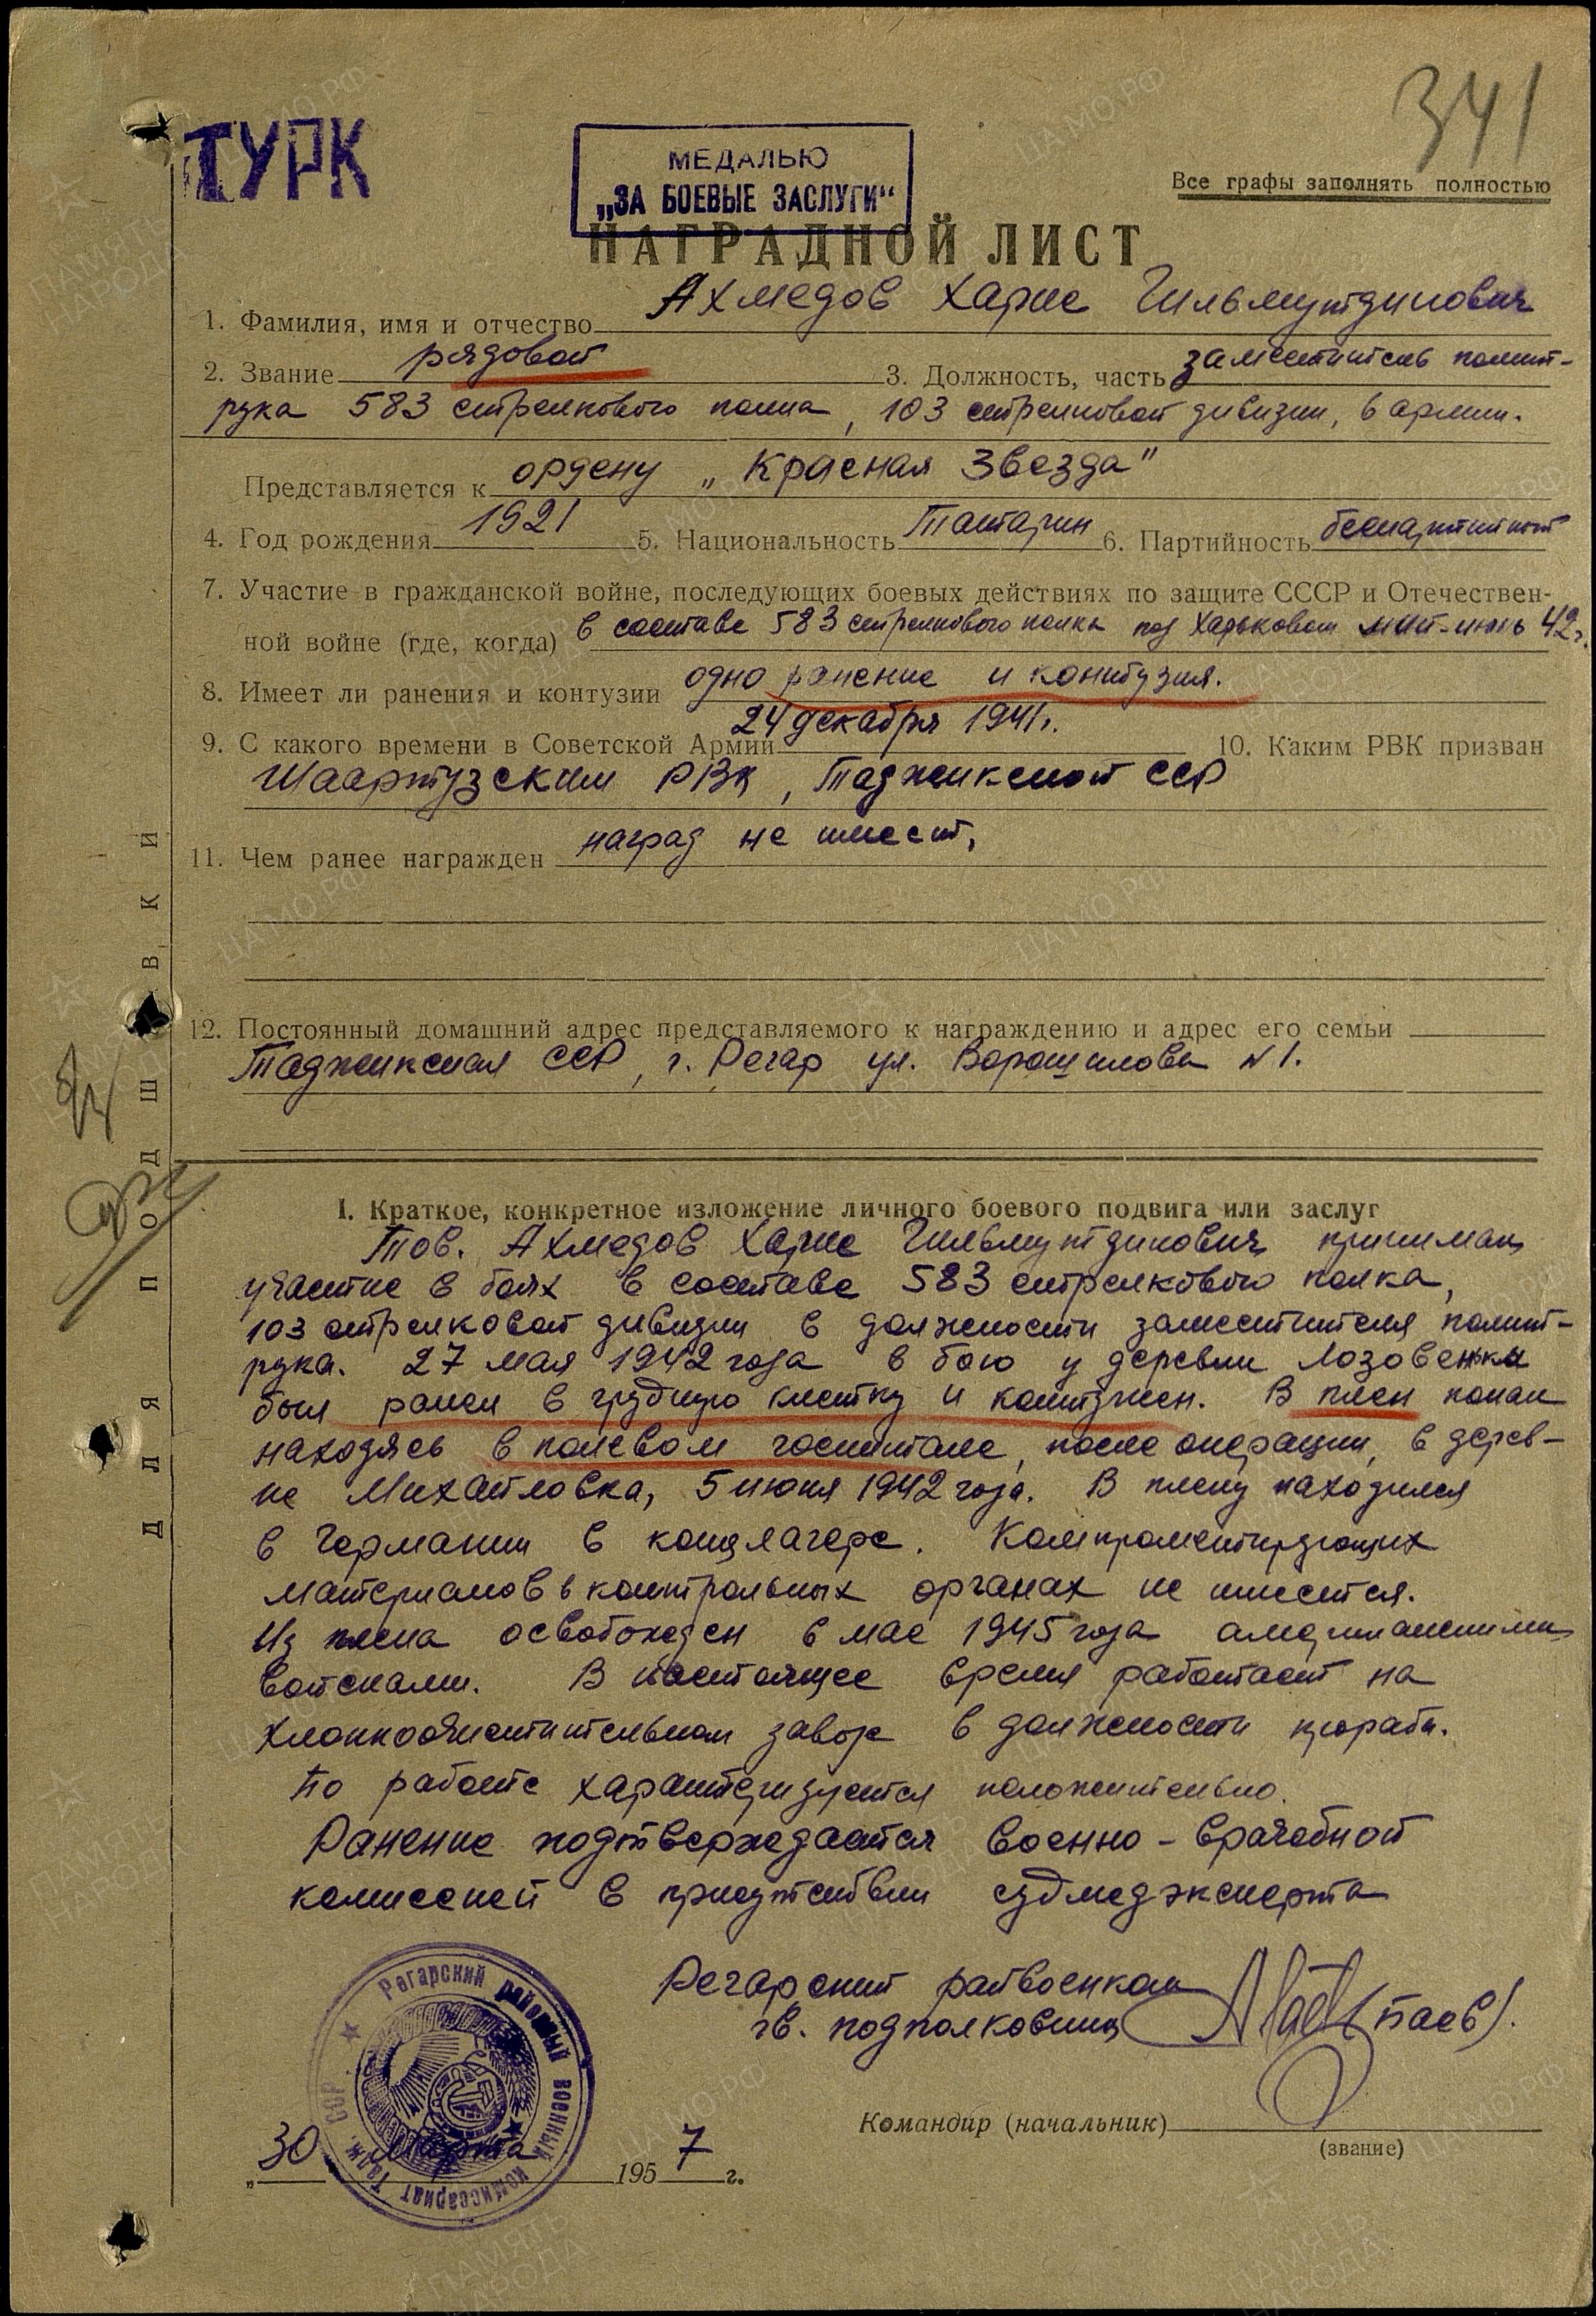 341
ТУРК
МЕДАЛЬЮ
„ЗА БОЕВЫЕ ЗАСЛУГИ“
Все графы заполнять полностью
НАГРАДНОЙ ЛИСТ
1. Фамилия, имя и отчество Ахмедов Харис Гильмутдинович
2. Звание рядовой 3. Должность, часть заместитель полит-
рука 583 стрелкового полка, 103 стрелковой дивизии, 6 армии.
Представляется к ордену „Красная Звезда"
4. Год рождения 1921 5. Национальность Татарин 6. Партийность беспартийный
7. Участие в гражданской войне, последующих боевых действиях по защите СССР и Отечествен-
ной войне (где, когда) в составе 583 стрелкового полка под Харьковом май-июнь 42г.
8. Имеет ли ранения и контузии одно ранение и контузия.
9. С какого времени в Советской Армии 24 декабря 1941г. 10. Каким РВК призван
Шаартузским РВК, Таджикской ССР
11. Чем ранее награжден наград не имеет.
12. Постоянный домашний адрес представляемого к награждению и адрес его семьи
Таджикская ССР, г. Регар ул. Ворошилова №1.
ДЛЯ ПОДШИВКИ
I. Краткое, конкретное изложение личного боевого подвига или заслуг
Тов. Ахмедов Харис Гильмутдинович принимал
участие в боях в составе 583 стрелкового полка,
103 стрелковой дивизии в должности заместителя полит-
рука. 27 мая 1942 года в бою у деревни Лозовеньки
был ранен в грудную клетку и контужен. В плен попал
находясь в полевом госпитале, после операции, в дерев-
не Михайловка, 5 июня 1942 года. В плену находился
в Германии в концлагере. Компрометирующих
материалов в контрольных органах не имеется.
Из плена освобожден в мае 1945 года американскими
войсками. В настоящее время работает на
хлопкоочистительном заводе в должности прораба.
По работе характеризуется положительно.
Ранение подтверждается военно-врачебной
комиссией в присутствии судмедэксперта
Регарский райвоенком
гв. подполковник (Паев).
Регарский районный военный комиссариат Тадж. ССР
Командир (начальник)
(звание)
„30 Марта 1957 г.